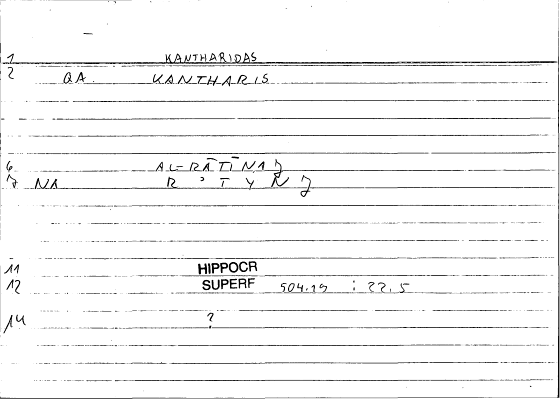 1 KANTHARIDAS
2 QA. KANTHARIS
6 AL-RĀTĪNAǦ
7 NA R ʾ T Y N Ǧ
11 HIPPOCR
12 SUPERF 504.19 : 22.5
14 ?